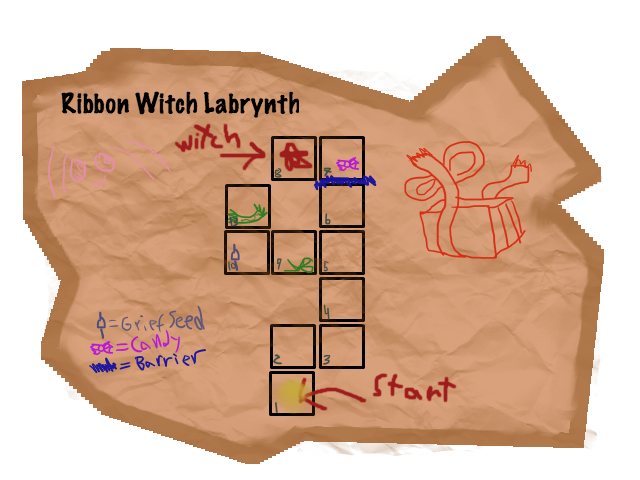 Ribbon Witch Labrynth
witch
8 7
6
10 9 5
4
2 3
1
Start
= Grief Seed
= Candy
= Barrier